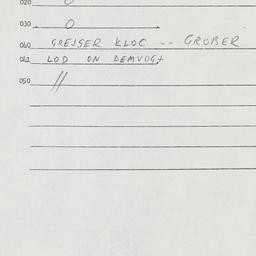 020 0
030 0
040 GREJSER KLOC -- GROBER
041 LOD ON DEMVOGT
050 //